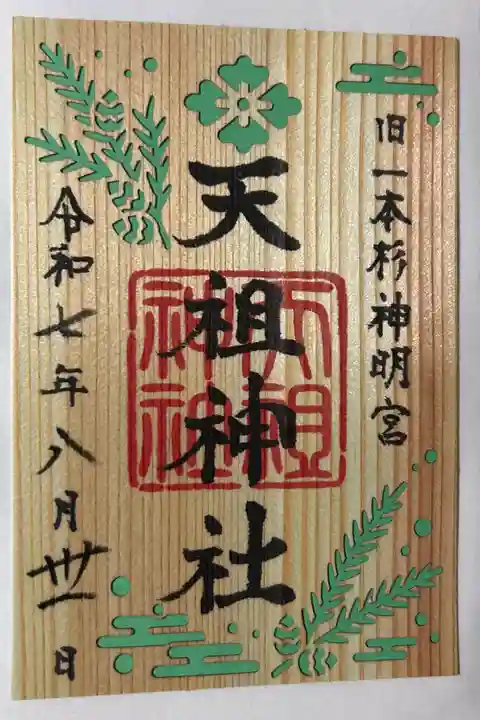 旧一本杉神明宮
天祖神社
天祖神社
令和七年八月卅一日